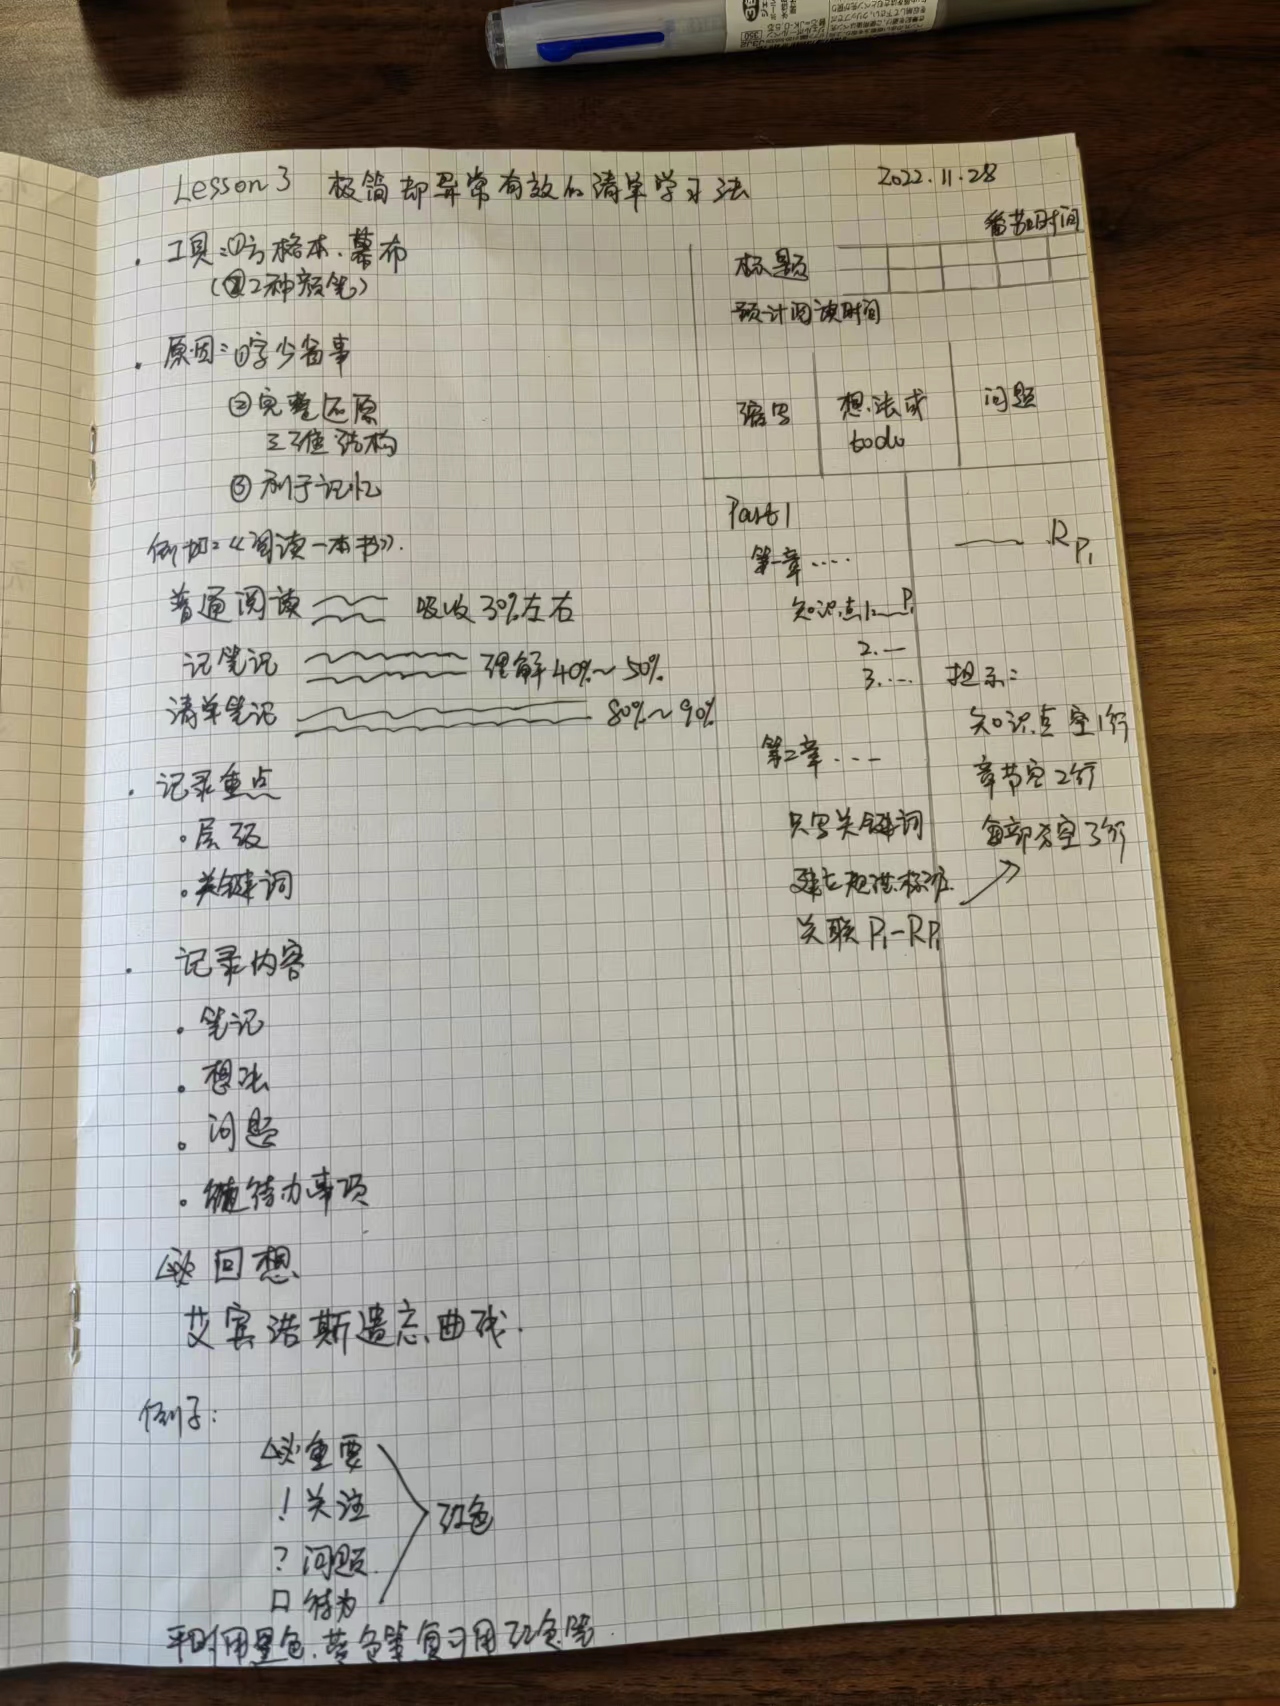 Lesson 3 极简却异常有效的清单学习法 2022.11.28
· 工具:①方格本、幕布
(②2种颜笔)
· 原因:①字少省事
②完整还原
三维结构
③利于记忆
例如:《阅读一本书》.
普通阅读 吸收30%左右
记笔记 理解40%~50%
清单笔记 80%~90%
· 记录重点
·层级
·关键词
· 记录内容
·笔记
·想法
·问题
·待办事项
必 回想
艾宾浩斯遗忘曲线.
例子:
必 重要
! 关注
? 问题
口 待为
红色
平时用黑色、蓝色笔复习用红色笔
番茄时间
标题
预计阅读时间
缩写
想法或
todo
问题
Part 1
第一章....
知识点1.— P1
2.—
3....
第二章...
只写关键词
建立规范标准
关联 P1-RP1
RP1
提示:
知识点空1行
章节空2行
每部分空3行